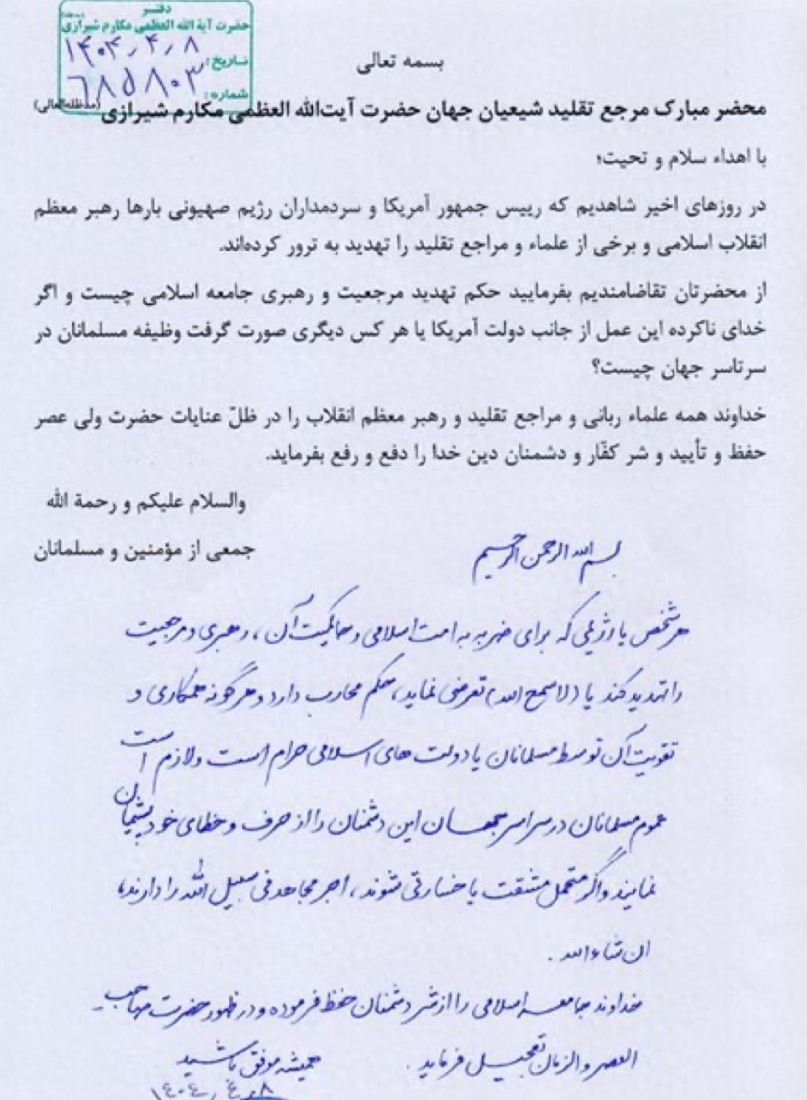 دفتر
حضرت آیة الله العظمی مکارم شیرازی (مدظله)
تاریخ: ۱۴۰۴٫۴٫۸
شماره: ۶۸۵۸۰۳
بسمه تعالی
محضر مبارک مرجع تقلید شیعیان جهان حضرت آیت‌الله العظمی مکارم شیرازی (مدظله‌العالی)
با اهداء سلام و تحیت؛
در روزهای اخیر شاهدیم که رییس جمهور آمریکا و سردمداران رژیم صهیونی بارها رهبر معظم
انقلاب اسلامی و برخی از علماء و مراجع تقلید را تهدید به ترور کرده‌اند.
از محضرتان تقاضامندیم بفرمایید حکم تهدید مرجعیت و رهبری جامعه اسلامی چیست و اگر
خدای ناکرده این عمل از جانب دولت آمریکا یا هر کس دیگری صورت گرفت وظیفه مسلمانان در
سرتاسر جهان چیست؟
خداوند همه علماء ربانی و مراجع تقلید و رهبر معظم انقلاب را در ظلّ عنایات حضرت ولی عصر
حفظ و تأیید و شر کفّار و دشمنان دین خدا را دفع و رفع بفرماید.
والسلام علیکم و رحمة الله
جمعی از مؤمنین و مسلمانان
بسم الله الرحمن الرحیم
هر شخص یا رژیمی که برای ضربه به امت اسلامی و حاکمیت آن، رهبری و مرجعیت
را تهدید کند یا (لا سمح الله) تعرضی نماید، حکم محارب دارد و هرگونه همکاری و
تقویت آن توسط مسلمانان یا دولت های اسلامی حرام است و لازم است
عموم مسلمانان در سراسر جهان این دشمنان را از حرف و خطای خود پشیمان
نمایند و اگر متحمل مشقت یا خسارتی شوند، اجر مجاهد فی سبیل الله را دارند،
ان شاء الله.
خداوند جامعه اسلامی را از شر دشمنان حفظ فرموده و در ظهور حضرت صاحب
العصر و الزمان تعجیل فرماید.
همیشه موفق باشید
۱۴۰۴٫۴٫۸